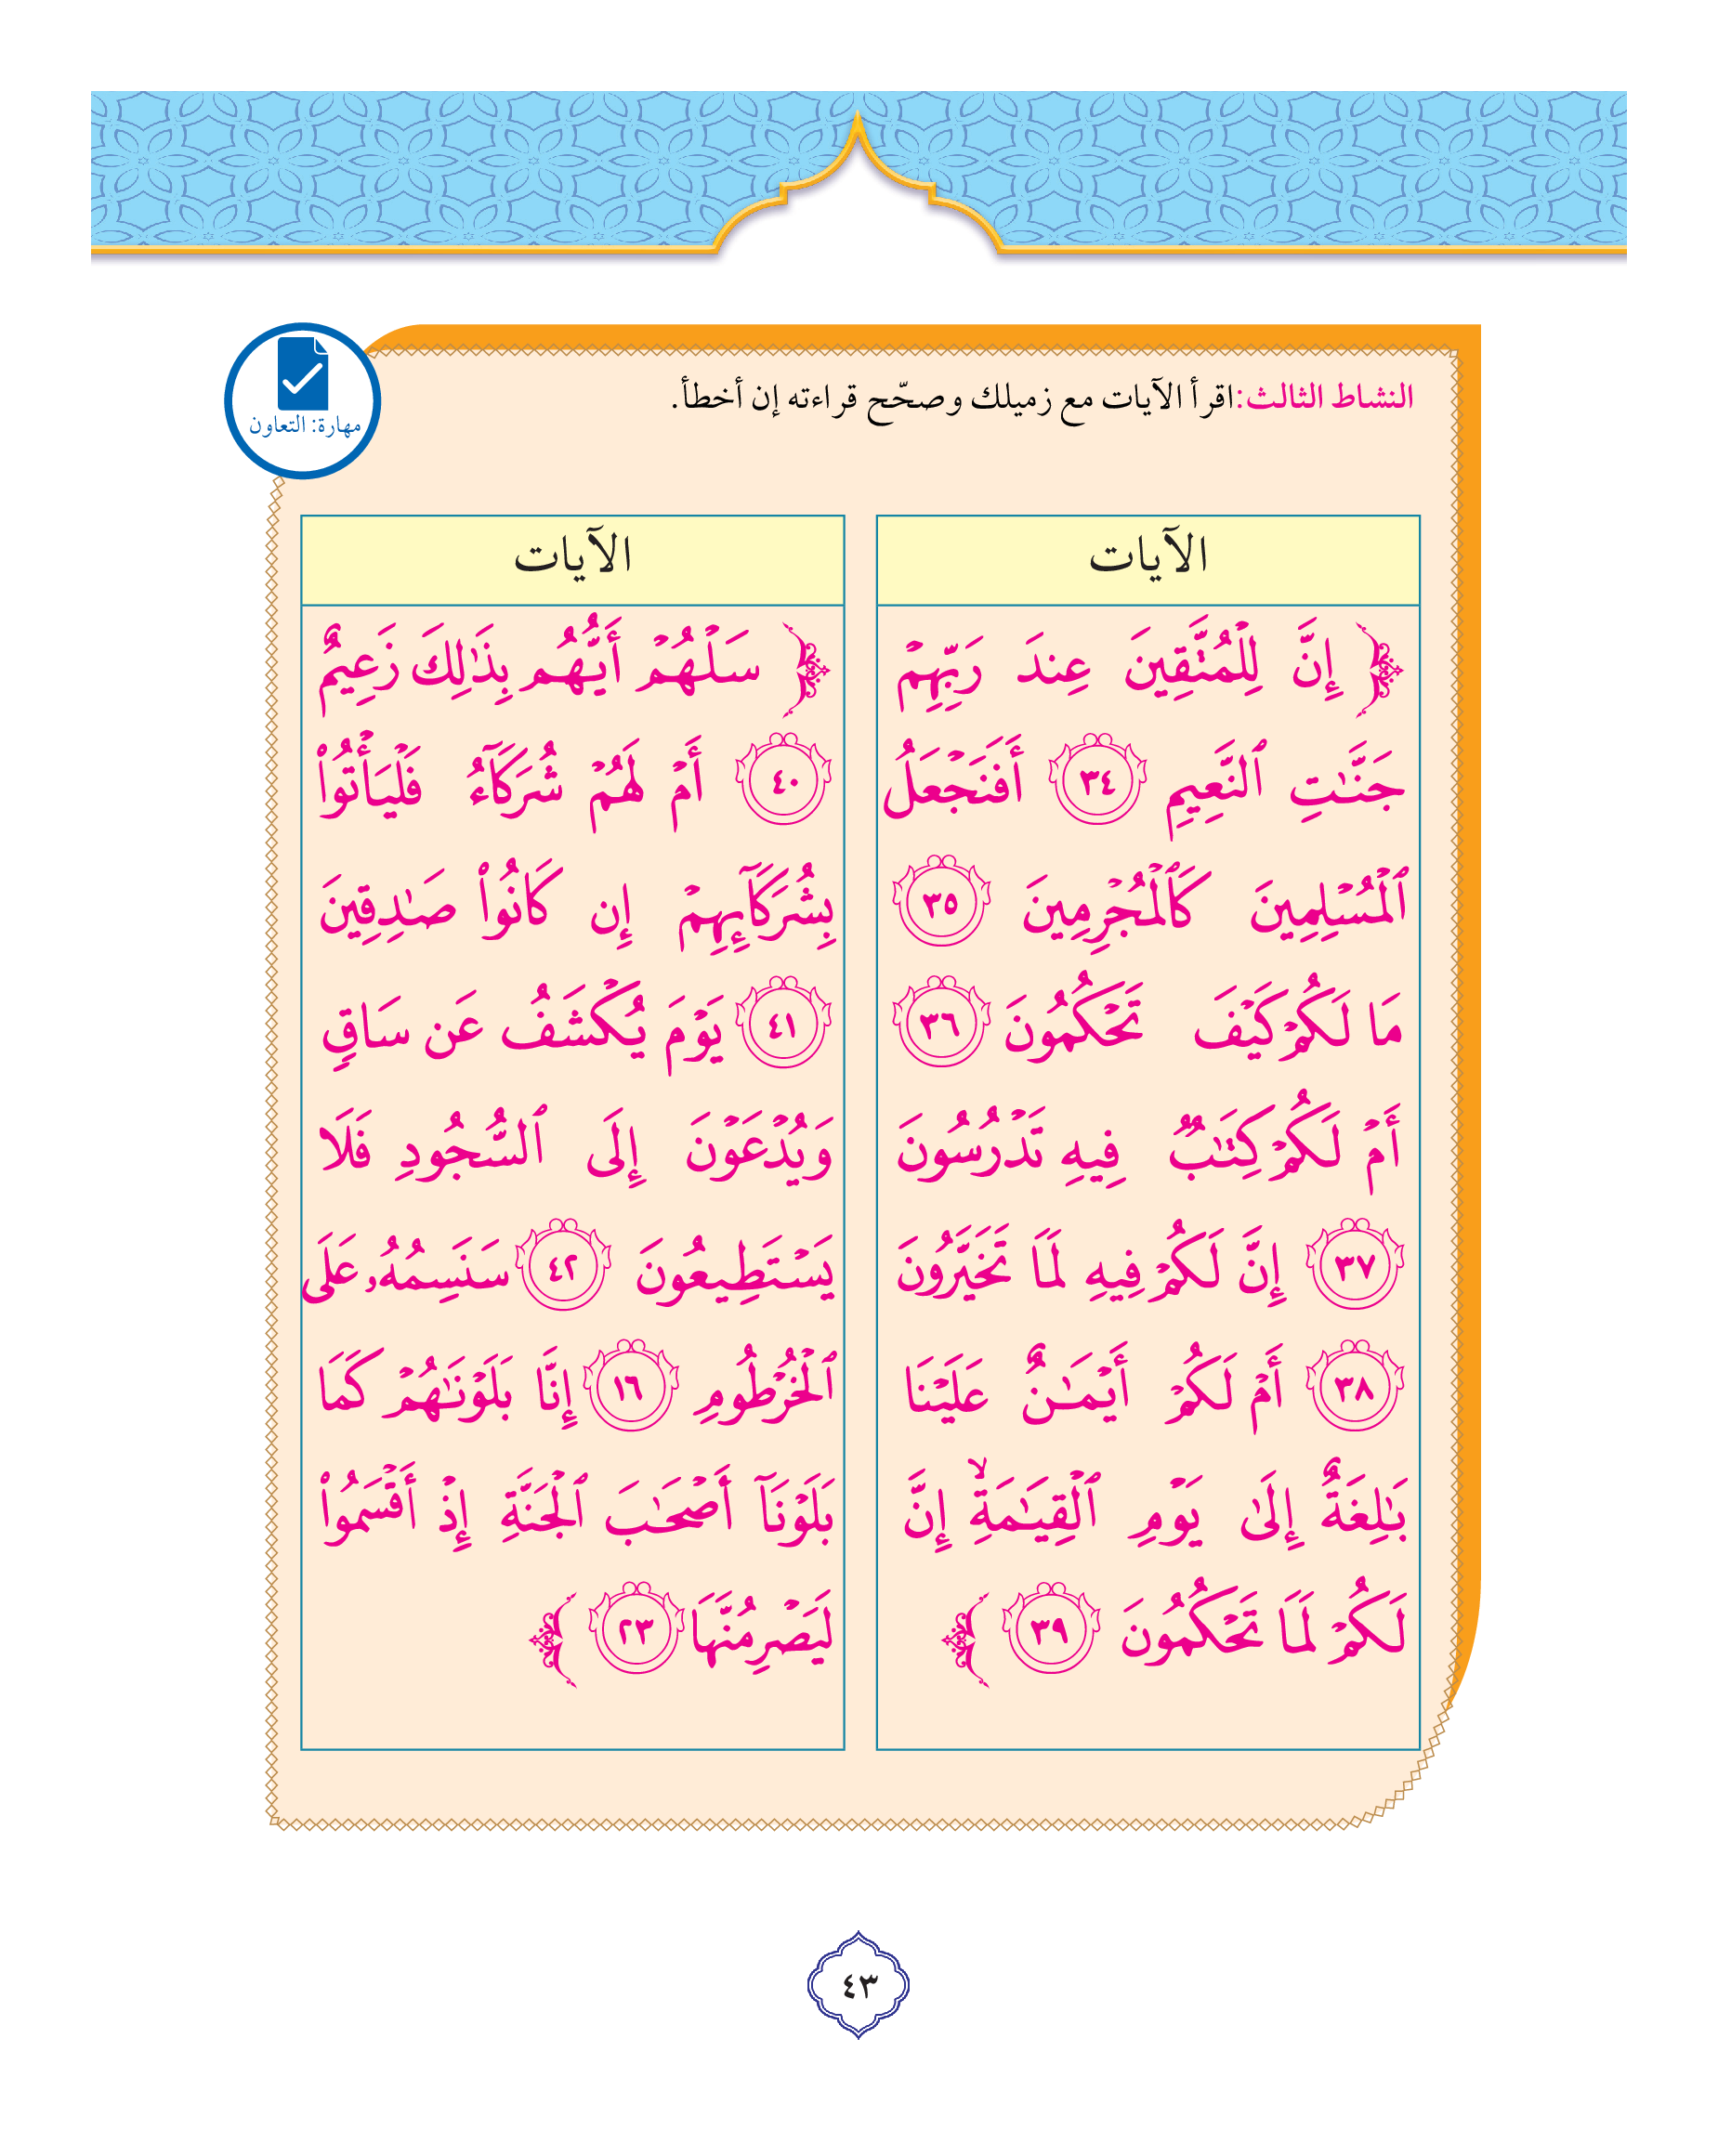 النشاط الثالث: اقرأ الآيات مع زميلك وصحّح قراءته إن أخطأ.
مهارة: التعاون
الآيات
﴿ إِنَّ لِلْمُتَّقِينَ عِندَ رَبِّهِمْ
جَنَّٰتِ ٱلنَّعِيمِ ٣٤ أَفَنَجْعَلُ
ٱلْمُسْلِمِينَ كَٱلْمُجْرِمِينَ ٣٥
مَا لَكُمْ كَيْفَ تَحْكُمُونَ ٣٦
أَمْ لَكُمْ كِتَٰبٌ فِيهِ تَدْرُسُونَ
٣٧ إِنَّ لَكُمْ فِيهِ لَمَا تَخَيَّرُونَ
٣٨ أَمْ لَكُمْ أَيْمَٰنٌ عَلَيْنَا
بَٰلِغَةٌ إِلَىٰ يَوْمِ ٱلْقِيَٰمَةِۙ إِنَّ
لَكُمْ لَمَا تَحْكُمُونَ ٣٩ ﴾
الآيات
﴿ سَلْهُمْ أَيُّهُم بِذَٰلِكَ زَعِيمٌ
٤٠ أَمْ لَهُمْ شُرَكَآءُ فَلْيَأْتُوا۟
بِشُرَكَآئِهِمْ إِن كَانُوا۟ صَٰدِقِينَ
٤١ يَوْمَ يُكْشَفُ عَن سَاقٍ
وَيُدْعَوْنَ إِلَى ٱلسُّجُودِ فَلَا
يَسْتَطِيعُونَ ٤٢ سَنَسِمُهُۥ عَلَى
ٱلْخُرْطُومِ ١٦ إِنَّا بَلَوْنَٰهُمْ كَمَا
بَلَوْنَآ أَصْحَٰبَ ٱلْجَنَّةِ إِذْ أَقْسَمُوا۟
لَيَصْرِمُنَّهَا ٢٣ ﴾
٤٣